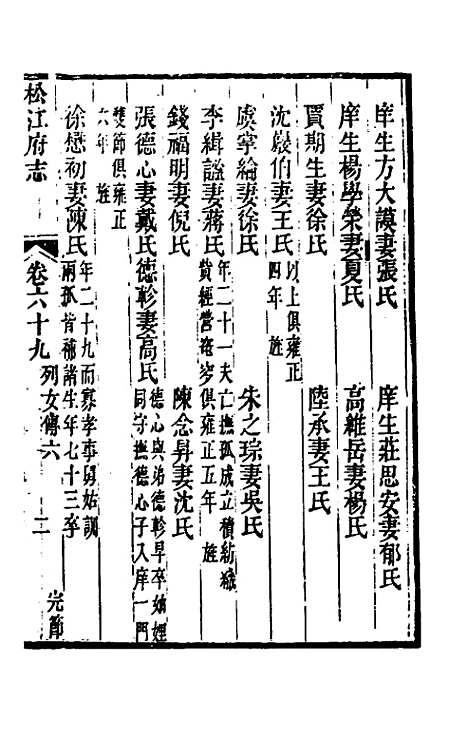 庠生方大謨妻張氏　庠生莊思安妻郁氏
庠生楊學榮妻夏氏　高維岳妻楊氏
賈期生妻徐氏　陸承妻王氏
沈嚴伯妻王氏以上俱雍正四年旌
虞掌綸妻徐氏　朱之琮妻吳氏
李緝謐妻蔣氏年二十一夫亡撫孤成立積紡績貲經營窀穸俱雍正五年旌
錢福明妻倪氏　陳念昇妻沈氏
張德心妻戴氏德軫妻高氏德心與弟德軫早卒妯娌同守撫德心子入庠一門
雙節俱雍正六年旌
徐懋初妻陳氏年二十九而寡孝事舅姑訓兩孤皆補諸生年七十三卒
松江府志　卷六十九　列女傳六　二　完節